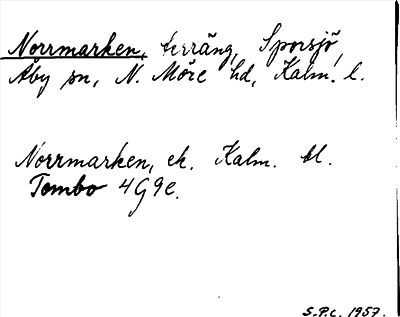 Norrmarken, terräng, Sporsjö,
Åby sn, N. Möre hd, Kalm. l.
Norrmarken, ek. Kalm. bl.
Tombo 4G9e.
S.P.L. 1957.